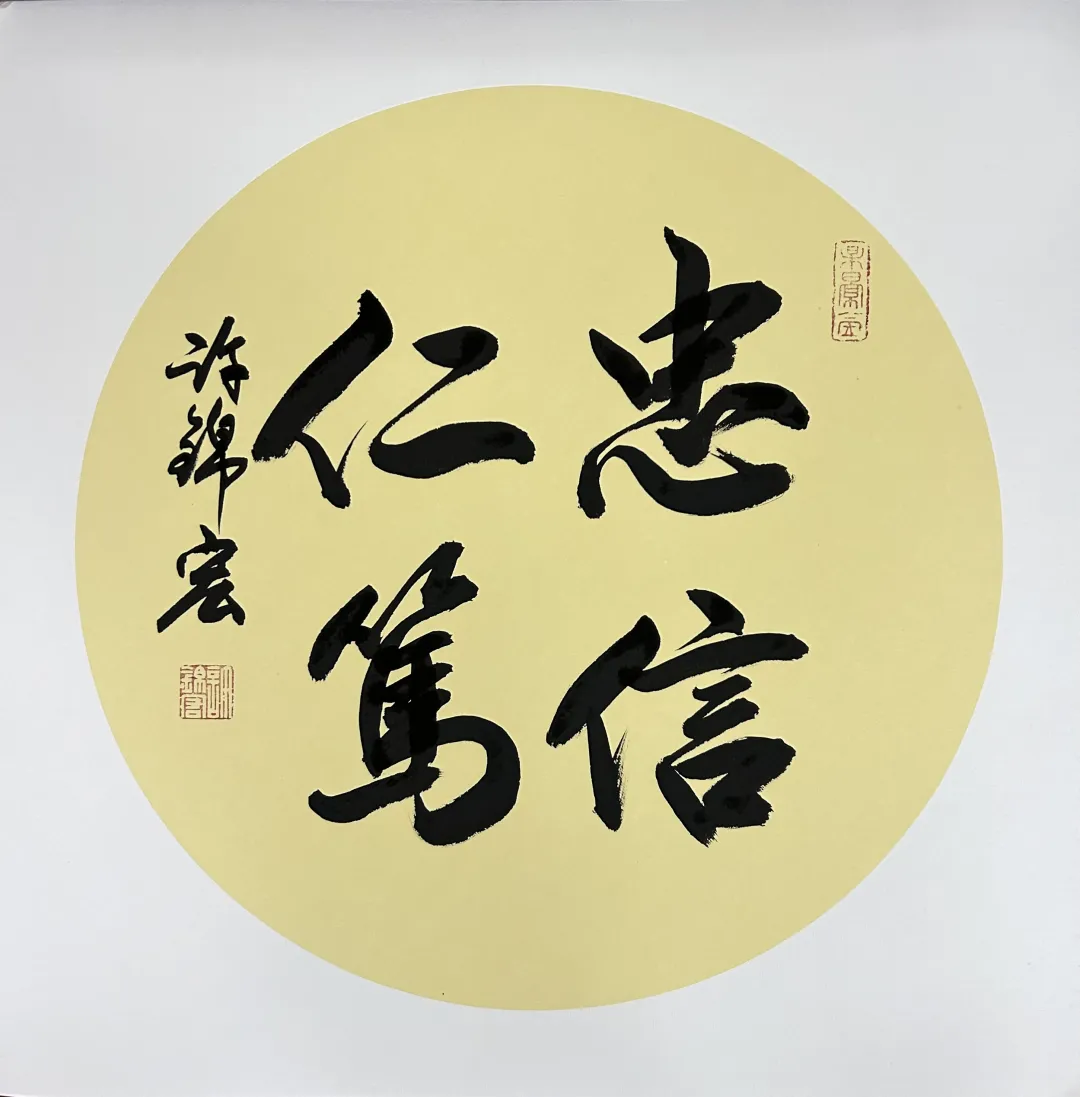 忠信
仁篤
许錦宏